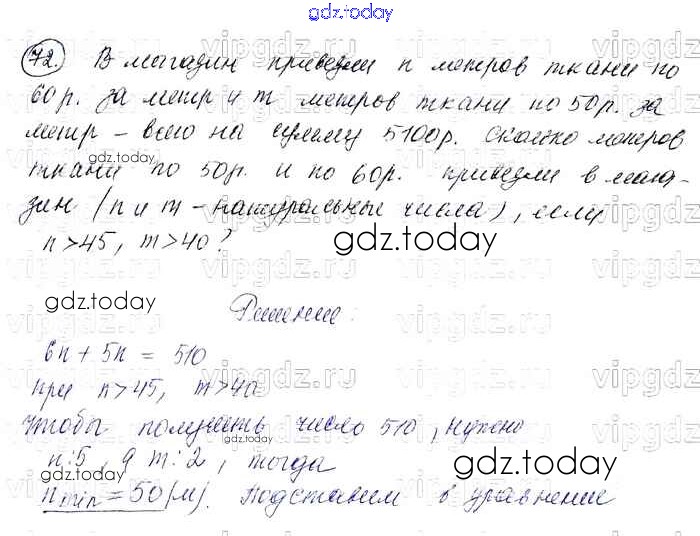 gdz.today
72. В магазин привезли n метров ткани по
60р. за метр и m метров ткани по 50р. за
метр – всего на сумму 5100р. Сколько метров
ткани по 50р. и по 60р. привезли в мага-
gdz.today
зин (n и m – натуральные числа), если
n>45, m>40?
gdz.today
gdz.today
Решение:
6n + 5n = 510
при n>45, m>40
gdz.today
Чтобы получить число 510, нужно
gdz.today
n:5, а m:2, тогда
gdz.today
n min = 50 (м). Подставим в уравнение